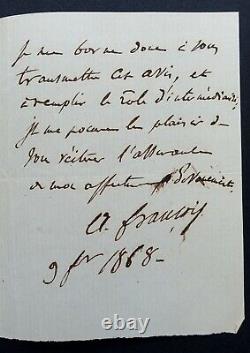 Je me borne donc à vous
transmettre cet avis, et
à remplir le rôle d'intermédiaire,
je me procure le plaisir de
vous réitérer l'assurance
de mon affectueux dévouement.
A. François
9 fr 1868 -
© ebay